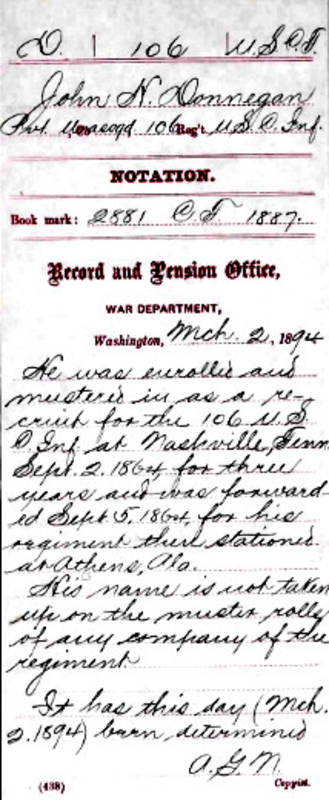 D. | 106 | U.S.C.T.
John N. Donnegan
Pvt, Co. Unassgd, 106 Reg't U.S.C. Inf.
NOTATION.
Book mark: 2881 C.T. 1887.
Record and Pension Office,
WAR DEPARTMENT,
Washington, Mch. 2, 1894
He was enrolled and
mustered in as a re-
cruit for the 106 U.S.
C. Inf. at Nashville, Tenn.
Sept. 2. 1864, for three
years and was forward-
ed Sept 5, 1864, for his
regiment then stationed
at Athens, Ala.
His name is not taken
up on the muster rolls
of any company of the
regiment
It has this day (Mch.
2. 1894) been determined
A. G. N.
(438) Copyist.